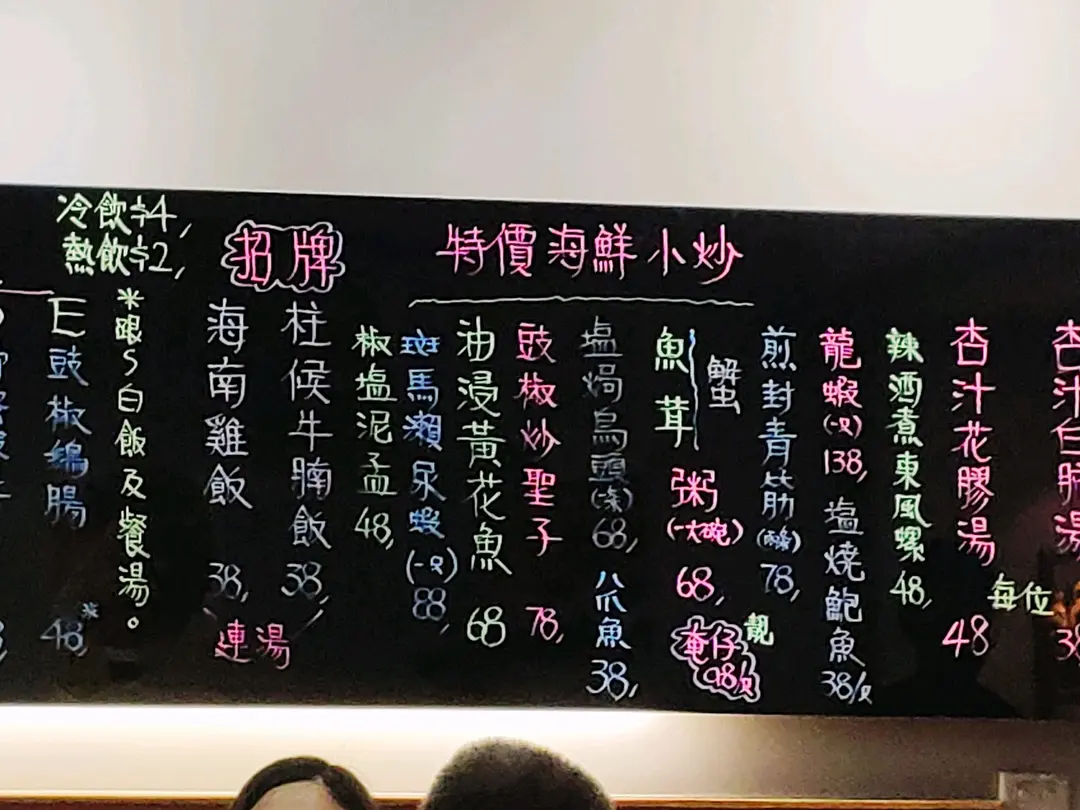 冷飲$4,
熱飲$2,
招牌
特價海鮮小炒
E豉椒鵝腸
48,*
*跟S白飯及餐湯。
海南雞飯
38,
柱侯牛腩飯
38,
連湯
椒塩泥孟
48,
斑馬瀨尿蝦
(一只)
88,
油浸黃花魚
68
豉椒炒聖子
78,
塩焗烏頭
(一条)
68,
八爪魚
38,
魚茸
蟹
粥
(一大碗)
68,
奄仔
靚
98/只
煎封青筋
78,
龍蝦
(一只)
138,
塩燒鮑魚
38/只
辣酒煮東風螺
48,
杏汁花膠湯
48
每位
杏汁白肺湯
38